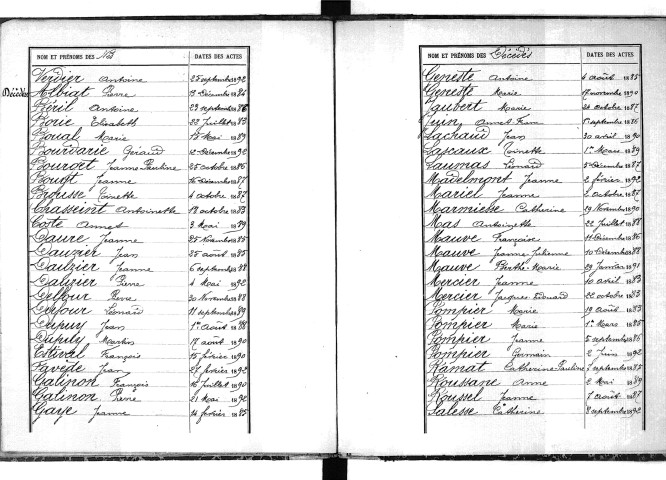 NOM ET PRÉNOMS DES Nés DATES DES ACTES
Verdier Antoine 25 septembre 1892
Décédés
Albiat Pierre 13 Décembre 1886
Béril Antoine 29 septembre 1886
Borie Elisabeth 22 Juillet 1883
Boual Marie 15 Mai 1889
Bourdarie Géraud 12 Décembre 1892
Bourott Jeanne Pauline 25 octobre 1886
Bourtt Jeanne 16 Décembre 1887
Brousse Toinette 4 octobre 1887
Chasseint Antoinette 18 octobre 1883
Coste Annet 3 Mai 1889
Daure Jeanne 25 Novembre 1885
Dauzier Jean 25 août 1885
Dauzier Jeanne 6 septembre 1888
Dauzier Pierre 4 Mai 1892
Dufour Pierre 20 Novembre 1888
Dufour Léonard 11 septembre 1889
Dupuy Jean 1er Août 1888
Dupuy Martin 17 août 1890
Estival François 15 février 1890
Favede Jean 27 février 1892
Galinon François 16 Juillet 1890
Galinon Pierre 21 Mai 1892
Gaye Jeanne 14 février 1885
NOM ET PRÉNOMS DES Décédés DATES DES ACTES
Geneste Antoine 4 août 1885
Geneste Marie 17 novembre 1890
Jaubert Marie 24 octobre 1887
Juin Annet 1er septembre 1886
Lachaud Jean 30 avril 1890
Lascaux Toinette 1er Mars 1889
Laumas Léonard 5 Décembre 1887
Madelmont Jeanne 2 février 1892
Mariel Jeanne 2 octobre 1887
Marmiesse Catherine 29 Novembre 1890
Mas Antoinette 22 Juillet 1888
Mauve Françoise 11 Décembre 1886
Mauve Jeanne Julienne 10 Décembre 1888
Mauve Berthe Marie 29 Janvier 1891
Mercier Jeanne 10 avril 1883
Mercier Jacques Edouard 22 octobre 1883
Pompier Marie 19 août 1883
Pompier Marie 1er Mars 1885
Pompier Jeanne 5 septembre 1886
Pompier Germain 2 Juin 1892
Ramat Catherine Pauline 7 septembre 1885
Roussane Anne 2 Mai 1889
Roussel Jeanne 7 août 1887
Salesse Catherine 8 septembre 1892